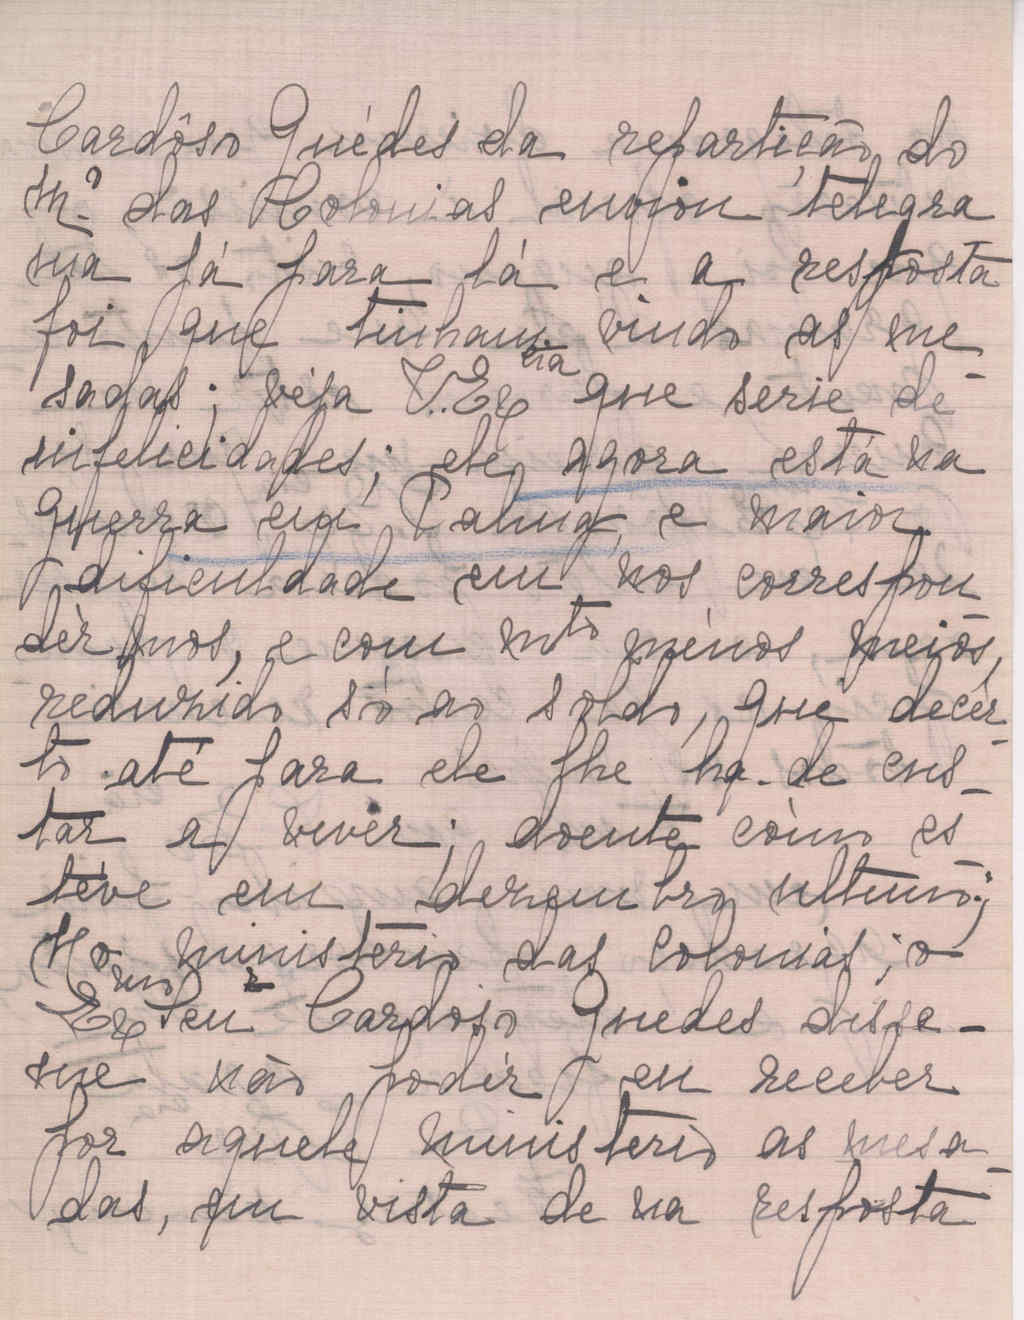 Cardôso Guédes da repartição do
M.º das Colonias enviou telegra
ma já para lá e a resposta
foi que tinham vindo as me
sadas; vêja V. Ex.cia que serie de
infelicidades; ele agora está na
guerra em e maior
dificuldade em nos correspon
dêr mos, e com mto ménos meios,
reduzido só ao soldo, que decér-
to até para ele lhe ha-de cus-
tar a viver; doente cômo es
têve em dezembro ultimo;
No ministerio das Colonias; o
Exmo Senr Cardoso Guedes disse-
me não podêr eu receber
por aquele ministerio as mesa-
das, em vista de na resposta